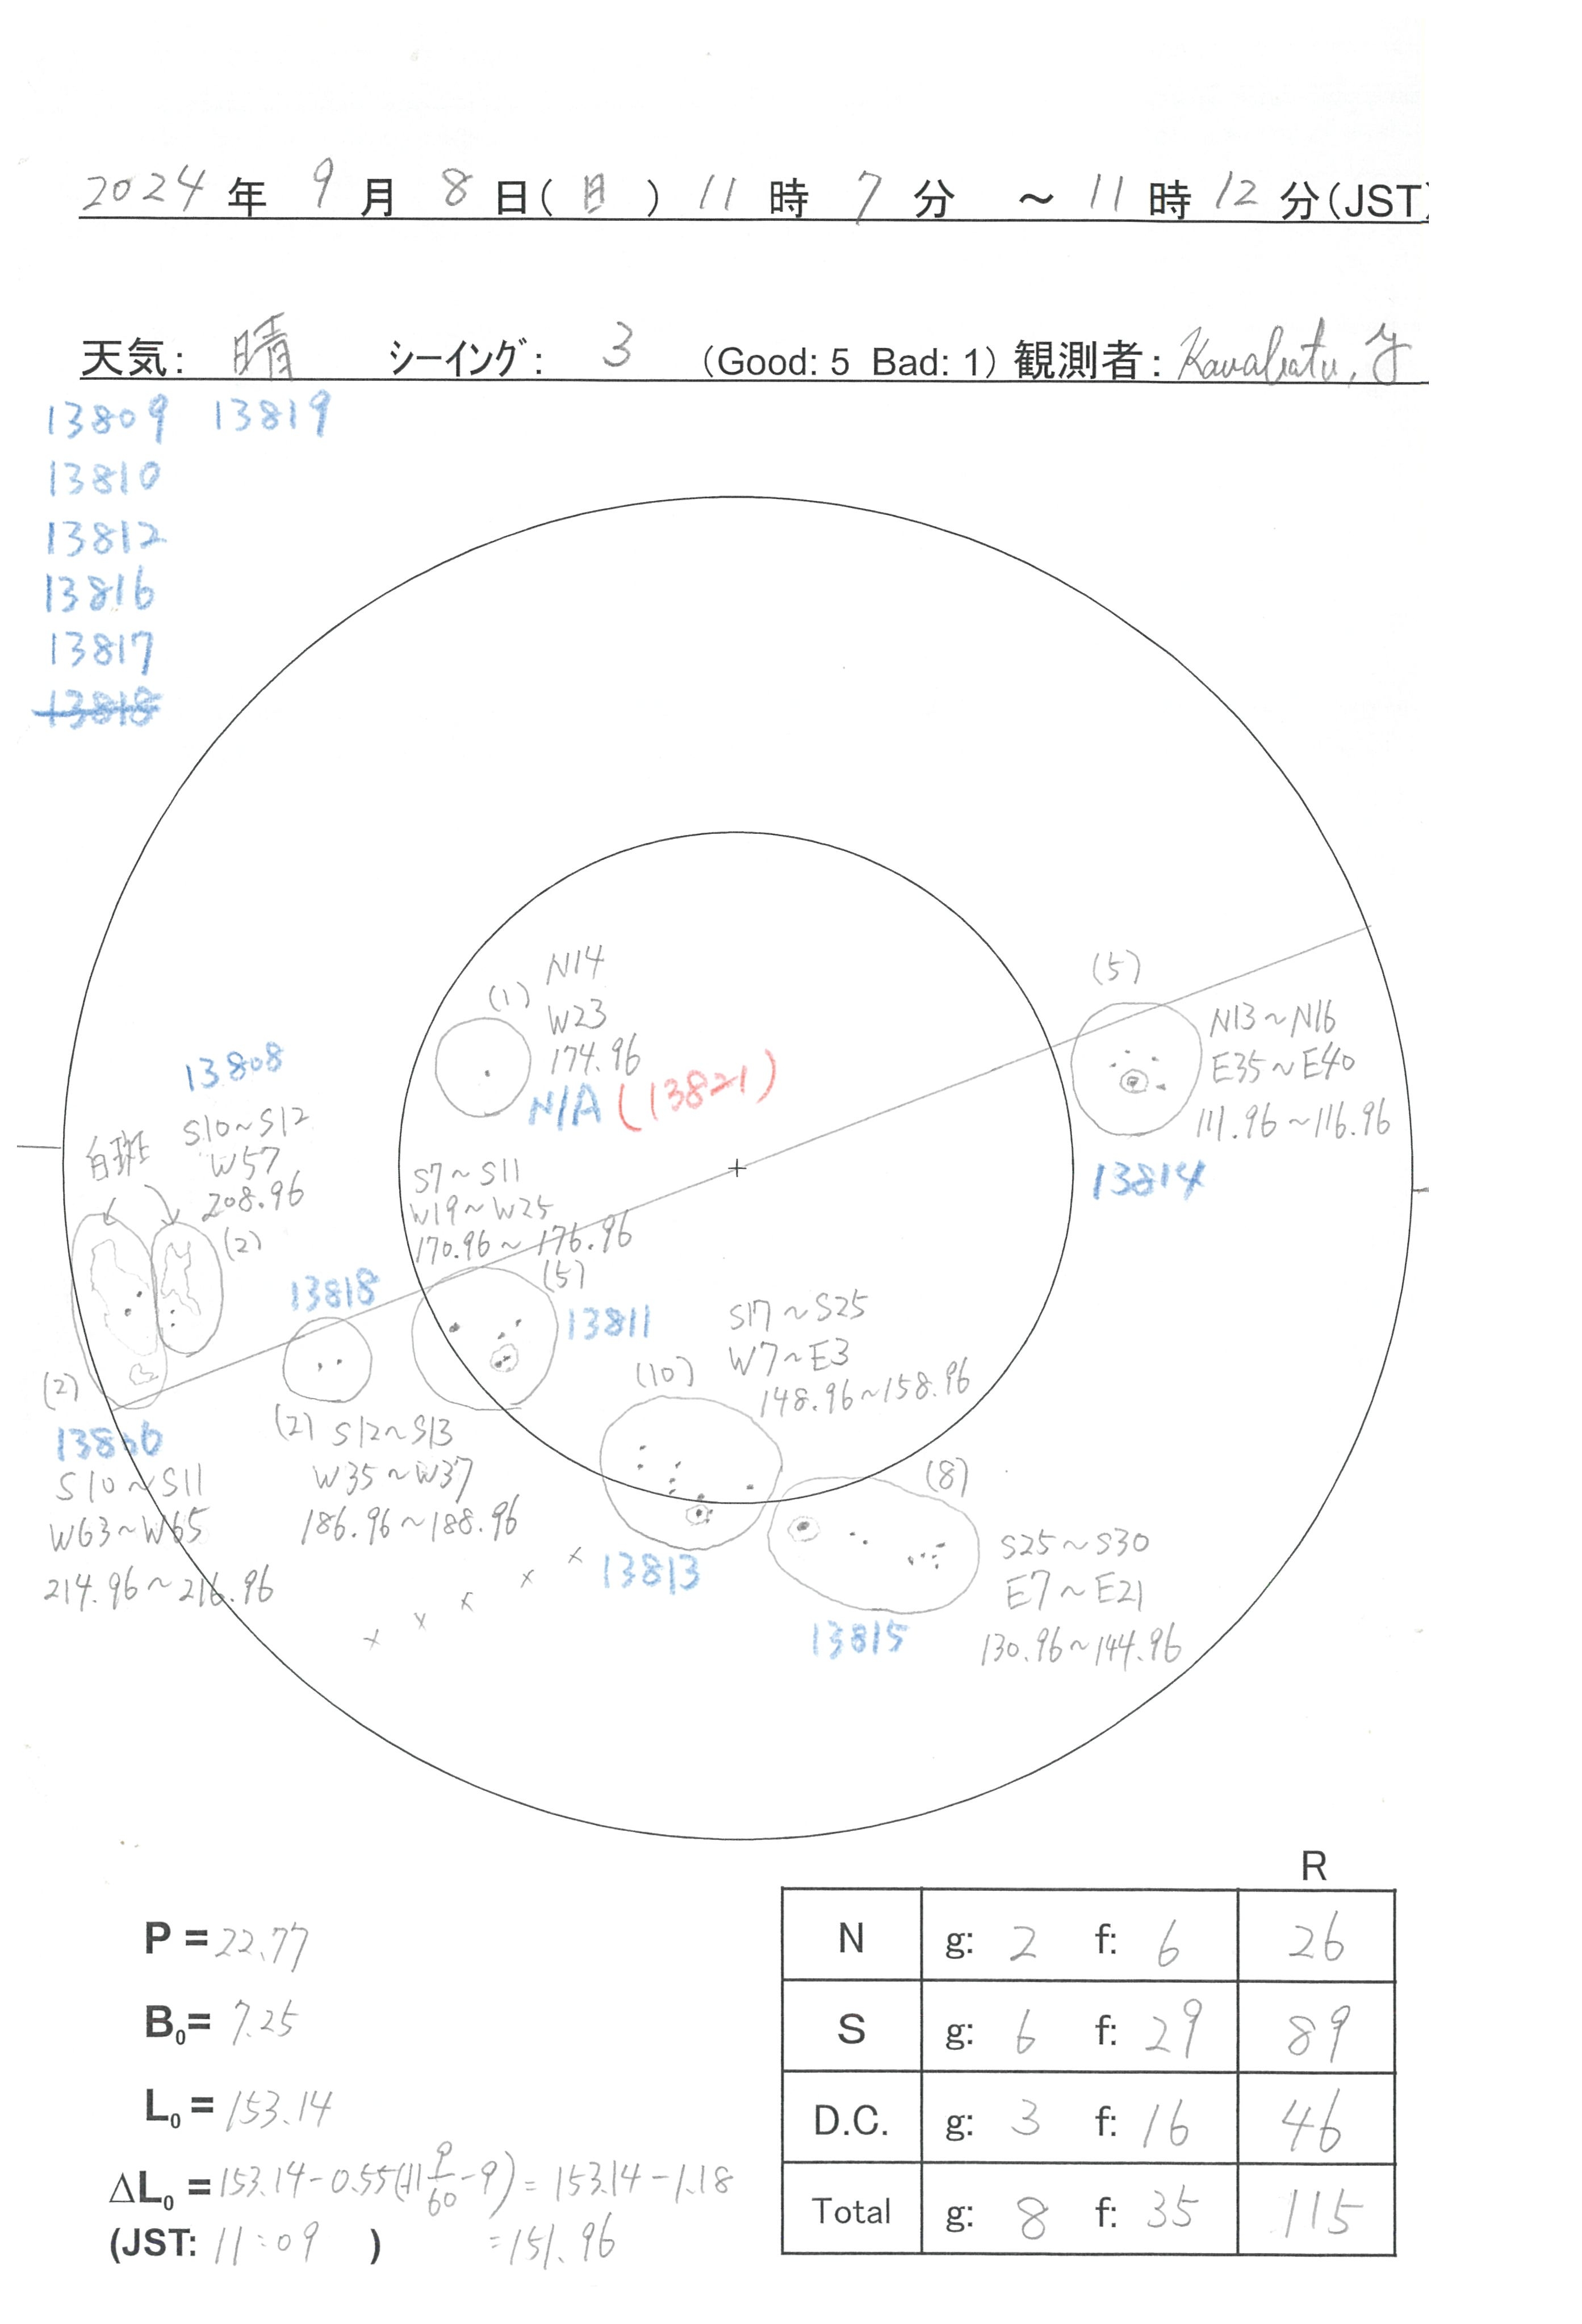 2024 年 9 月 8 日(日) 11 時 7 分 ~ 11 時 12 分(JST)
天気: 晴 シーイング: 3 (Good: 5 Bad: 1) 観測者: Kawabata, Y
13809 13819
13810
13812
13816
13817
13818
(1)
N14
W23
174.96
N/A (13821)
(5)
N13~N16
E35~E40
111.96~116.96
13814
13808
S10~S12
W57
208.96
(2)
白斑
S7~S11
W19~W25
170.96~176.96
(5)
13811
13818
(2) S12~S13
W35~W37
186.96~188.96
(2)
13806
S10~S11
W63~W65
214.96~216.96
S17~S25
W7~E3
148.96~158.96
(10)
13813
(8)
S25~S30
E7~E21
130.96~144.96
13815
x x x x x
P = 22.77
B₀ = 7.25
L₀ = 153.14
ΔL₀ = 153.14-0.55(11 9/60 -9) = 153.14-1.18
(JST: 11:09 ) =151.96
R
N g: 2 f: 6 26
S g: 6 f: 29 89
D.C. g: 3 f: 16 46
Total g: 8 f: 35 115